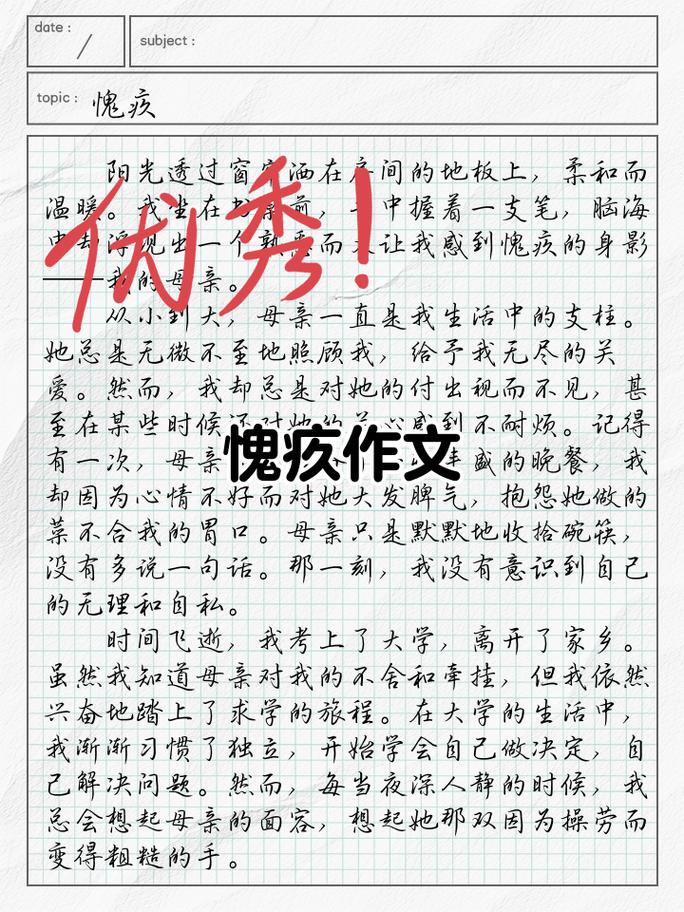 date :
/
subject :
topic : 愧疚
阳光透过窗 洒在房间的地板上，柔和而
温暖。我坐在书 前， 中握着一支笔，脑海
中却浮现出一个熟悉而又让我感到愧疚的身影
——我的母亲。
优秀！
从小到大，母亲一直是我生活中的支柱。
她总是无微不至地照顾我，给予我无尽的关
爱。然而，我却总是对她的付出视而不见，甚
至在某些时候还对她的关心感到不耐烦。记得
愧疚作文
有一次，母亲 盛的晚餐，我
却因为心情不好而对她大发脾气，抱怨她做的
菜不合我的胃口。母亲只是默默地收拾碗筷，
没有多说一句话。那一刻，我没有意识到自己
的无理和自私。
时间飞逝，我考上了大学，离开了家乡。
虽然我知道母亲对我的不舍和牵挂，但我依然
兴奋地踏上了求学的旅程。在大学的生活中，
我渐渐习惯了独立，开始学会自己做决定，自
己解决问题。然而，每当夜深人静的时候，我
总会想起母亲的面容，想起她那双因为操劳而
变得粗糙的手。